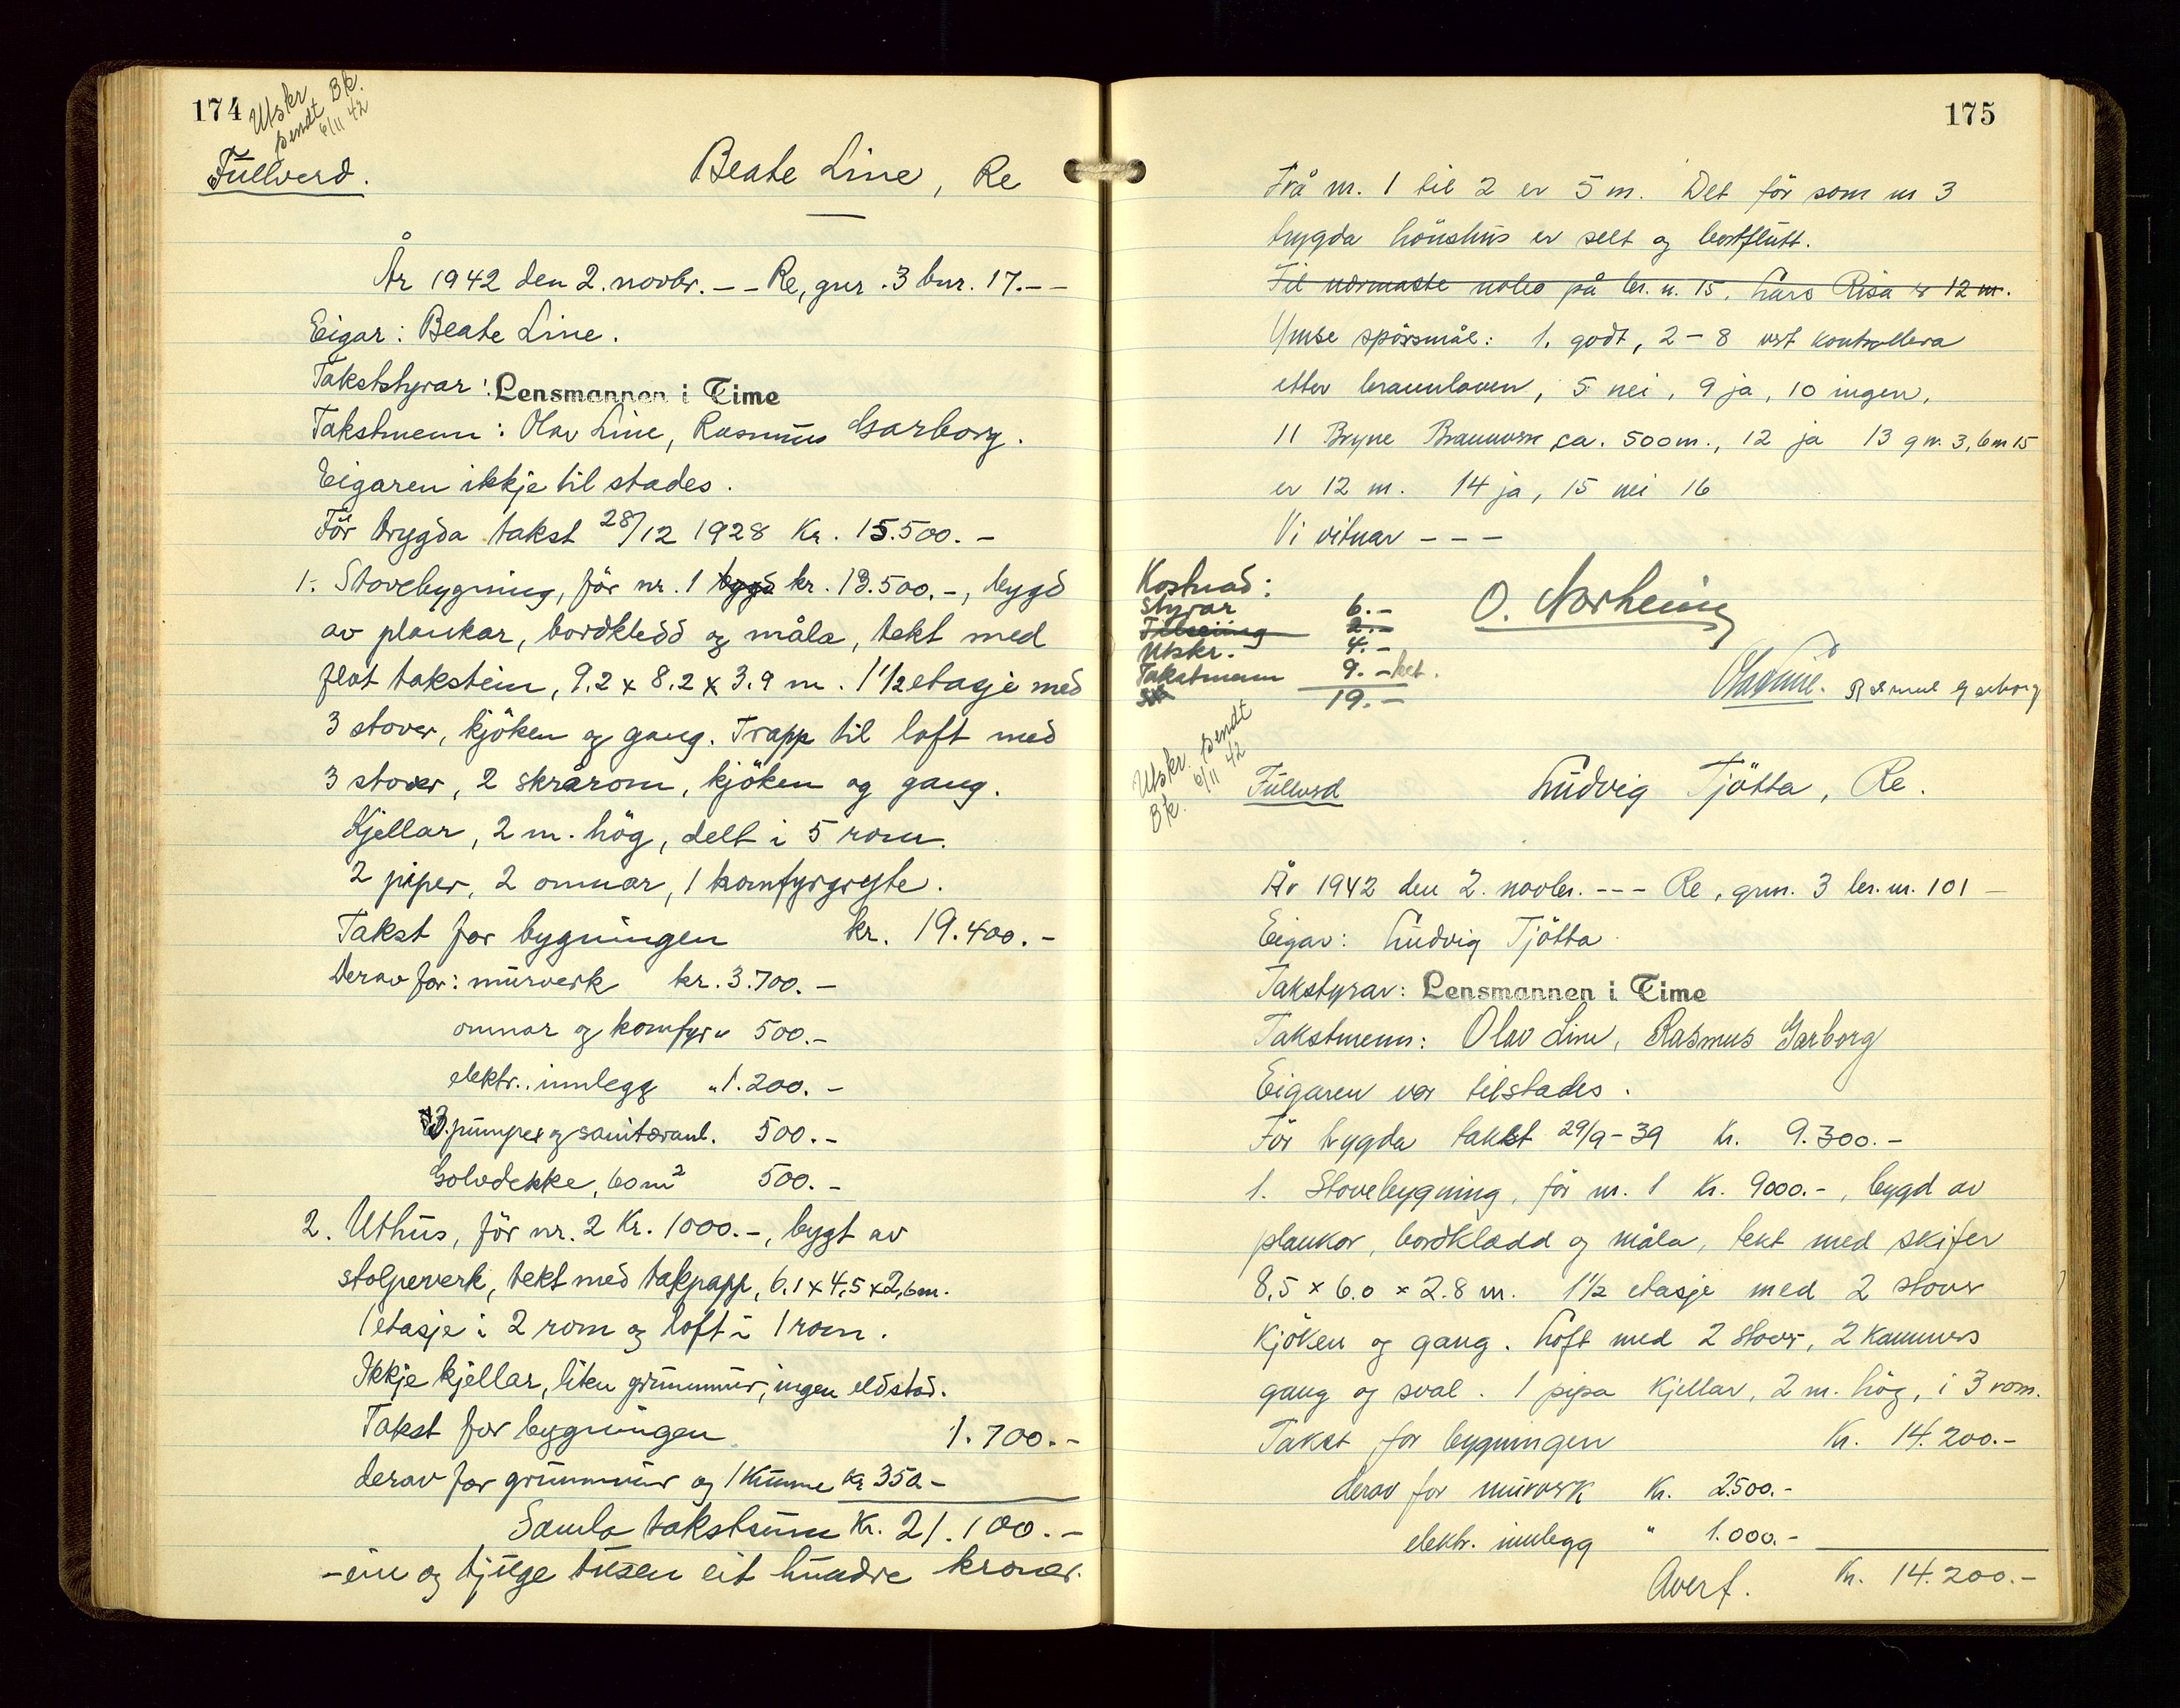 174
Utskr
sendt Bk.
6/11 42
Fullverd.
Beate Line, Re
År 1942 den 2. novbr. - - Re, gnr. 3 bnr. 17. - -
Eigar: Beate Line.
Takststyrar: Lensmannen i Time
Takstmenn: Olav Line, Rasmus Garborg.
Eigaren ikkje til stades.
Før trygda takst 28/12 1928 Kr. 15.500.-
1. Stovebygning, før nr. 1 bygd kr. 13.500.-, bygd
av plankar, bordkledd og måla, tekt med
flat takstein, 9.2 x 8.2 x 3.9 m. 1 1/2 etasje med
3 stover, kjøken og gang. Trapp til loft med
3 stover, 2 skrårom, kjøken og gang.
Kjellar, 2 m. høg, delt i 5 rom.
2 piper, 2 omnar, 1 komfyrgryte.
Takst for bygningen kr. 19.400.-
Derav for: murverk kr. 3.700.-
omnar og komfyr " 500.-
elektr. innlegg " 1.200.-
3 pumper og sanitæranl. 500.-
Golvdekke, 60 m2 500.-
2. Uthus, før nr. 2 Kr. 1000.-, bygt av
stolpeverk, tekt med takpapp, 6.1 x 4.5 x 2,6 m.
1 etasje i 2 rom og loft i 1 rom.
Ikkje kjellar, liten grunnmur, ingen eldstad.
Takst for bygningen 1.700.-
derav for grunnmur og 1 kumme kr 350.-
Samla takstsum Kr. 21.100.-
- ein og tjuge tusen eit hundre kroner.
175
Frå nr. 1 til 2 er 5 m. Det før som nr 3
trygda hönshus er selt og bortflutt.
Til nærmaste nabo på br. n. 15, Lars Risa er 12 m.
Ymse spörsmål: 1. godt, 2 - 8 vert kontrollera
etter brannloven, 5 nei, 9 ja, 10 ingen,
11 Bryne Brannvern ca. 500 m., 12 ja 13 g nr. 3, b nr 15
er 12 m. 14 ja, 15 nei 16
Vi vitnar - - -
Kostnad:
Styrar 6.-
Tilseiing 2.-
Utskr. 4.-
Takstmenn 9.- bet.
19.-
O. Norheim
Olav Line. Rasmus Garborg
Utskr. sendt
Bk. 6/11 42
Fullverd
Ludvig Tjötta, Re.
År 1942 den 2. novbr. - - - Re, gnr. 3 br. nr. 101 -
Eigar: Ludvig Tjötta
Takstyrar: Lensmannen i Time
Takstmenn: Olav Line, Rasmus Garborg
Eigaren var tilstades.
Før trygda takst 29/9 - 39 kr. 9.300.-
1. Stovebygning, før nr. 1 Kr. 9000.-, bygd av
plankar, bordkladd og måla, tekt med skifer
8,5 x 6.0 x 2.8 m. 1 1/2 etasje med 2 stover
kjöken og gang. Loft med 2 stover, 2 kammers
gang og sval. 1 pipa Kjellar, 2 m. høg, i 3 rom.
Takst for bygningen Kr. 14.200.-
derav for murverk Kr. 2500.-
elektr. innlegg " 1.000.-
Overf. Kr. 14.200.-